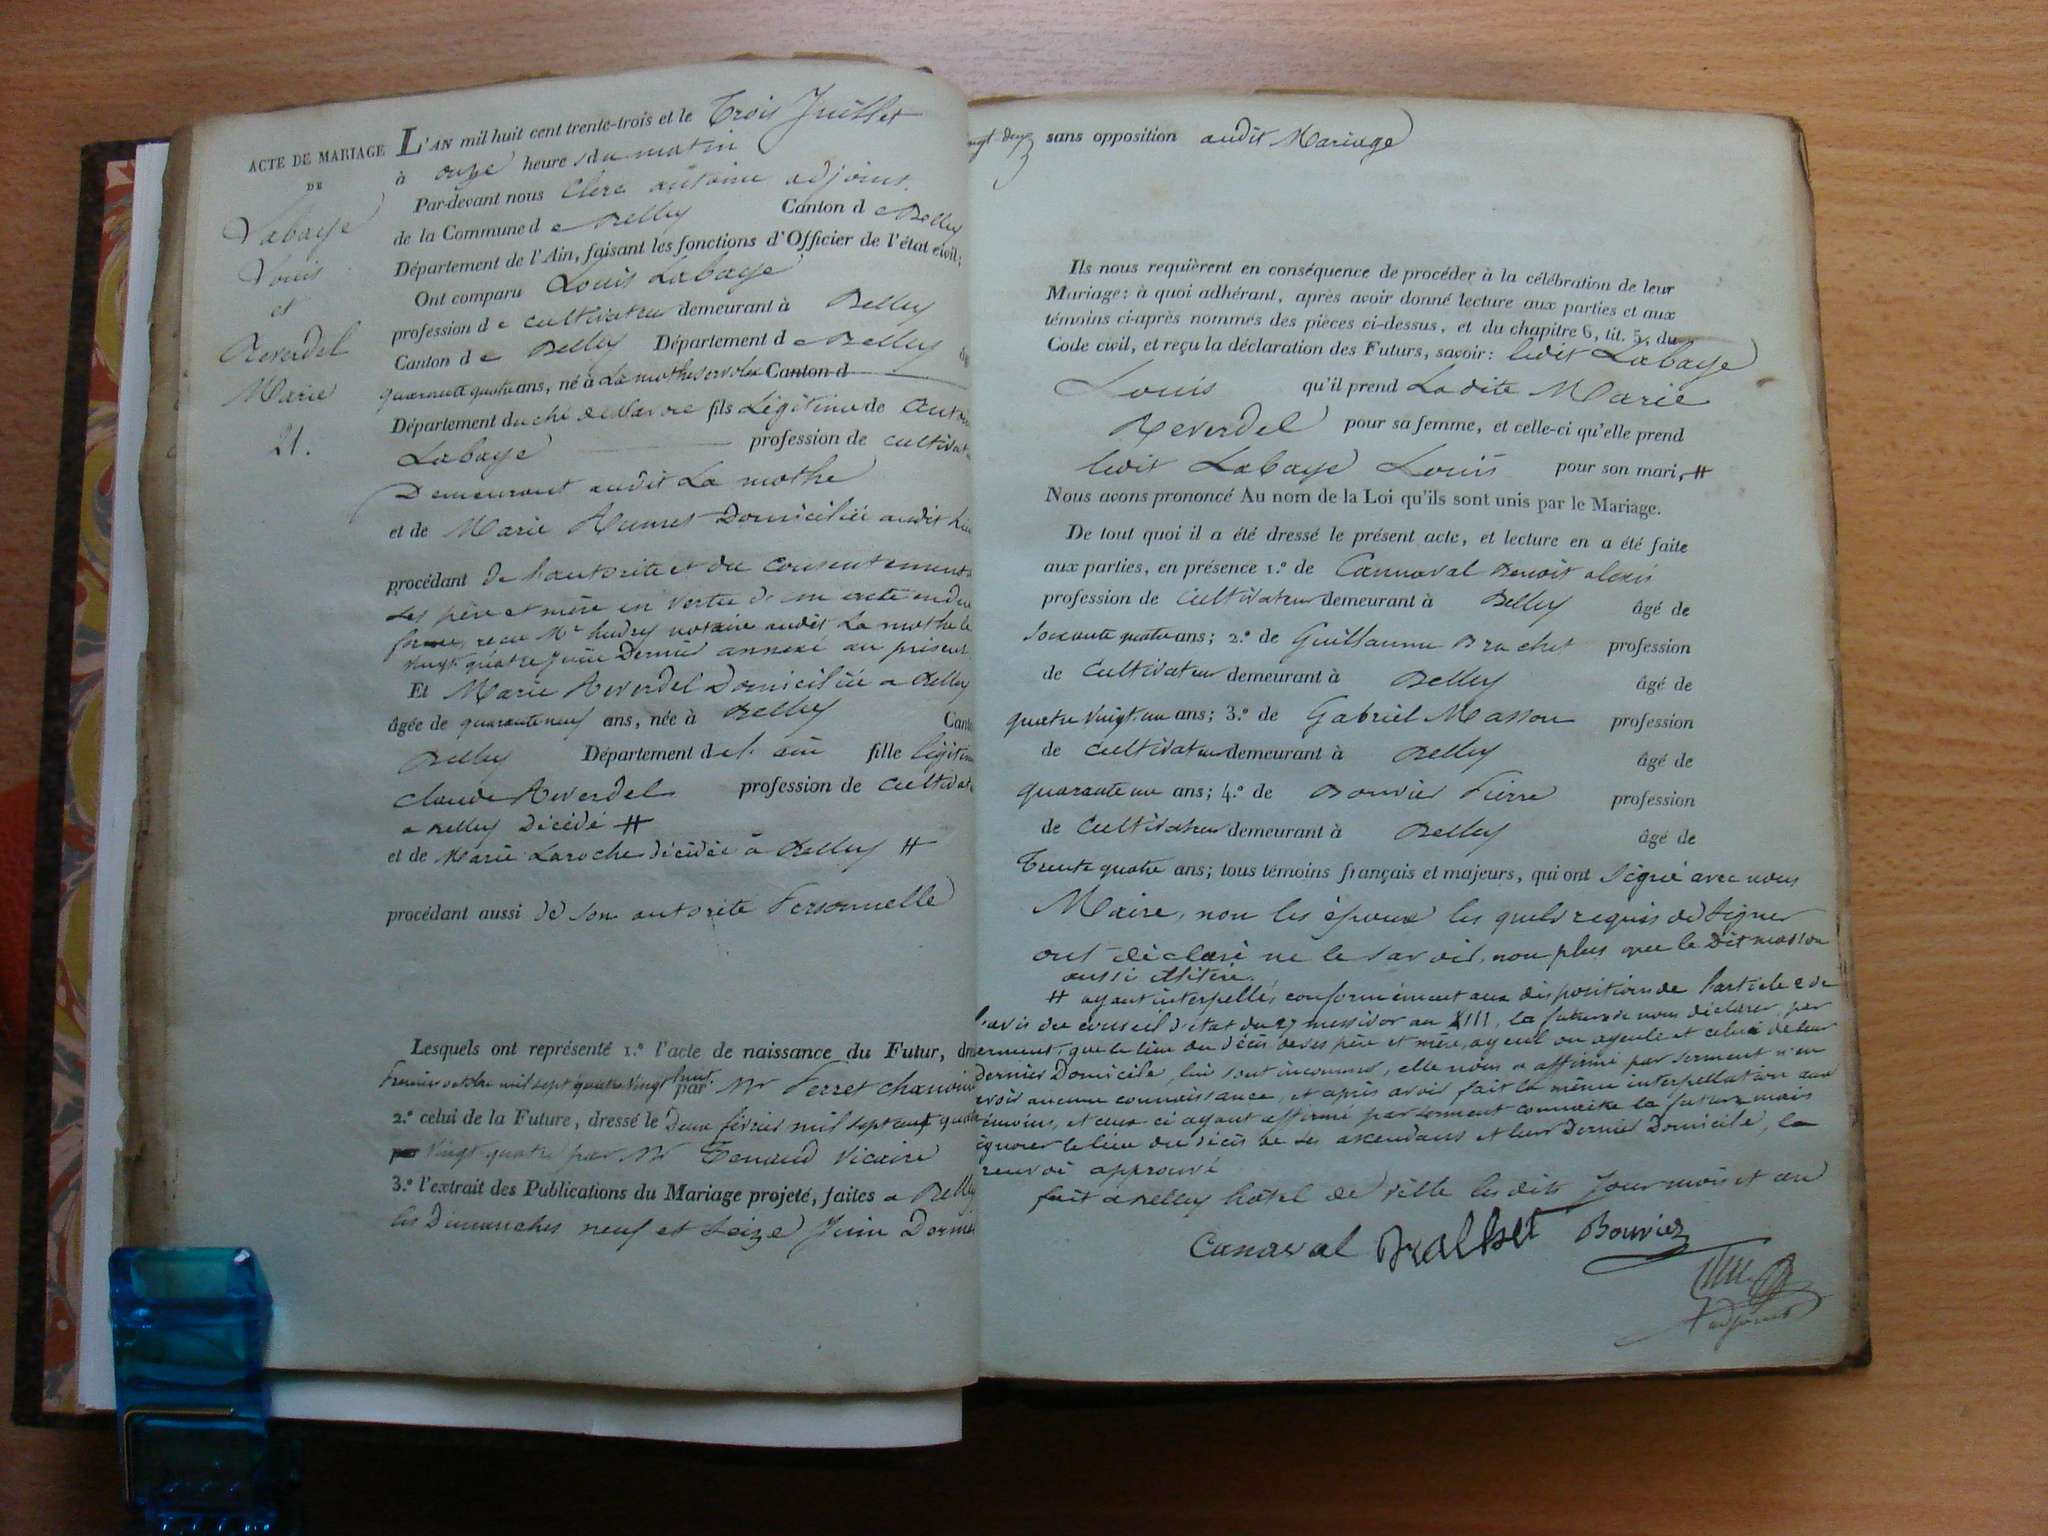 ACTE DE MARIAGE
DE
Labaye
Louis
et
Reverdel
Marie
21.
L'AN mil huit cent trente-trois et le Trois Juillet
à onze heures du matin
Par-devant nous Clerc antoine adjoint
de la Commune de Belley Canton de Belley
Département de l'Ain, faisant les fonctions d'Officier de l'état civil;
Ont comparu Louis Labaye
profession de cultivateur demeurant à Belley
Canton de Belley Département de Belley
quarante quatre ans, né à La mothe Canton d
Département duché de Savoie fils Légitime de
Labaye profession de
Demeurant audit La mothe
et de Marie Domiciliée audit lieu
procédant de l'autorité et du consentement
des père et mère en vertu d'un acte en due
forme, recu Mr notaire audit La mothe le
vingt quatre juin Dernier annexé au présent
Et Marie Reverdel Domiciliée a Belley
âgée de quarante neuf ans, née à Belley
Belley Département de l'ain fille légitime
Claude Reverdel profession de
a Belley Décédé #
et de Marie Laroche décédée à Belley #
procédant aussi de son autorité Personnelle
Lesquels ont représenté 1.º l'acte de naissance du Futur,
premier octobre mil sept quatre vingt huit par Mr Perret
2.º celui de la Future, dressé le Deux février mil sept cent
vingt quatre par Mr Tenaud vicaire
3.º l'extrait des Publications du Mariage projeté, faites a Belley
les Dimanches neuf et seize Juin Dernier
sans opposition audit Mariage
Ils nous requièrent en conséquence de procéder à la célébration de leur
Mariage: à quoi adhérant, après avoir donné lecture aux parties et aux
témoins ci-après nommés des pièces ci-dessus, et du chapitre 6, tit. 5, du
Code civil, et reçu la déclaration des Futurs, savoir: ledit Labaye
Louis qu'il prend Ladite Marie
Reverdel pour sa femme, et celle-ci qu'elle prend
ledit Labaye Louis pour son mari, #
Nous avons prononcé Au nom de la Loi qu'ils sont unis par le Mariage.
De tout quoi il a été dressé le présent acte, et lecture en a été faite
aux parties, en présence 1.º de Cannaval Benoit alexis
profession de Cultivateur demeurant à Belley âgé de
soixante quatre ans; 2.º de Guillaume Brachet profession
de Cultivateur demeurant à Belley âgé de
quatre vingt un ans; 3.º de Gabriel Masson profession
de Cultivateur demeurant à Belley âgé de
quarante un ans; 4.º de Bouvier Pierre profession
de Cultivateur demeurant à Belley âgé de
Trente quatre ans; tous témoins français et majeurs, qui ont signé avec nous
Maire, non les époux les quels requis de signer
ont déclaré ne le savoir, non plus que le Dit masson
aussi illitéré.
# ayant interpellés conformément aux dispositions de l'article 2 de
l'avis du conseil d'état du 27 messidor an XIII, la future de nous déclarer par
serment, que le lieu du décès de ses père et mère, ayeul ou ayeule et celui de leur
dernier Domicile, lui sont inconnus, elle nous a affirmé par serment n'en
avoir aucune connaissance, et après avoir fait la même interpellation aux
témoins, et ceux ci ayant affirmé par serment connaitre la future mais
ignorer le lieu du décès de ses ascendans et leur Dernier Domicile, le
renvoi approuvé
fait à Belley hôtel de ville les dits Jour mois et an
Canaval Bralhet Bouvier
adjoint